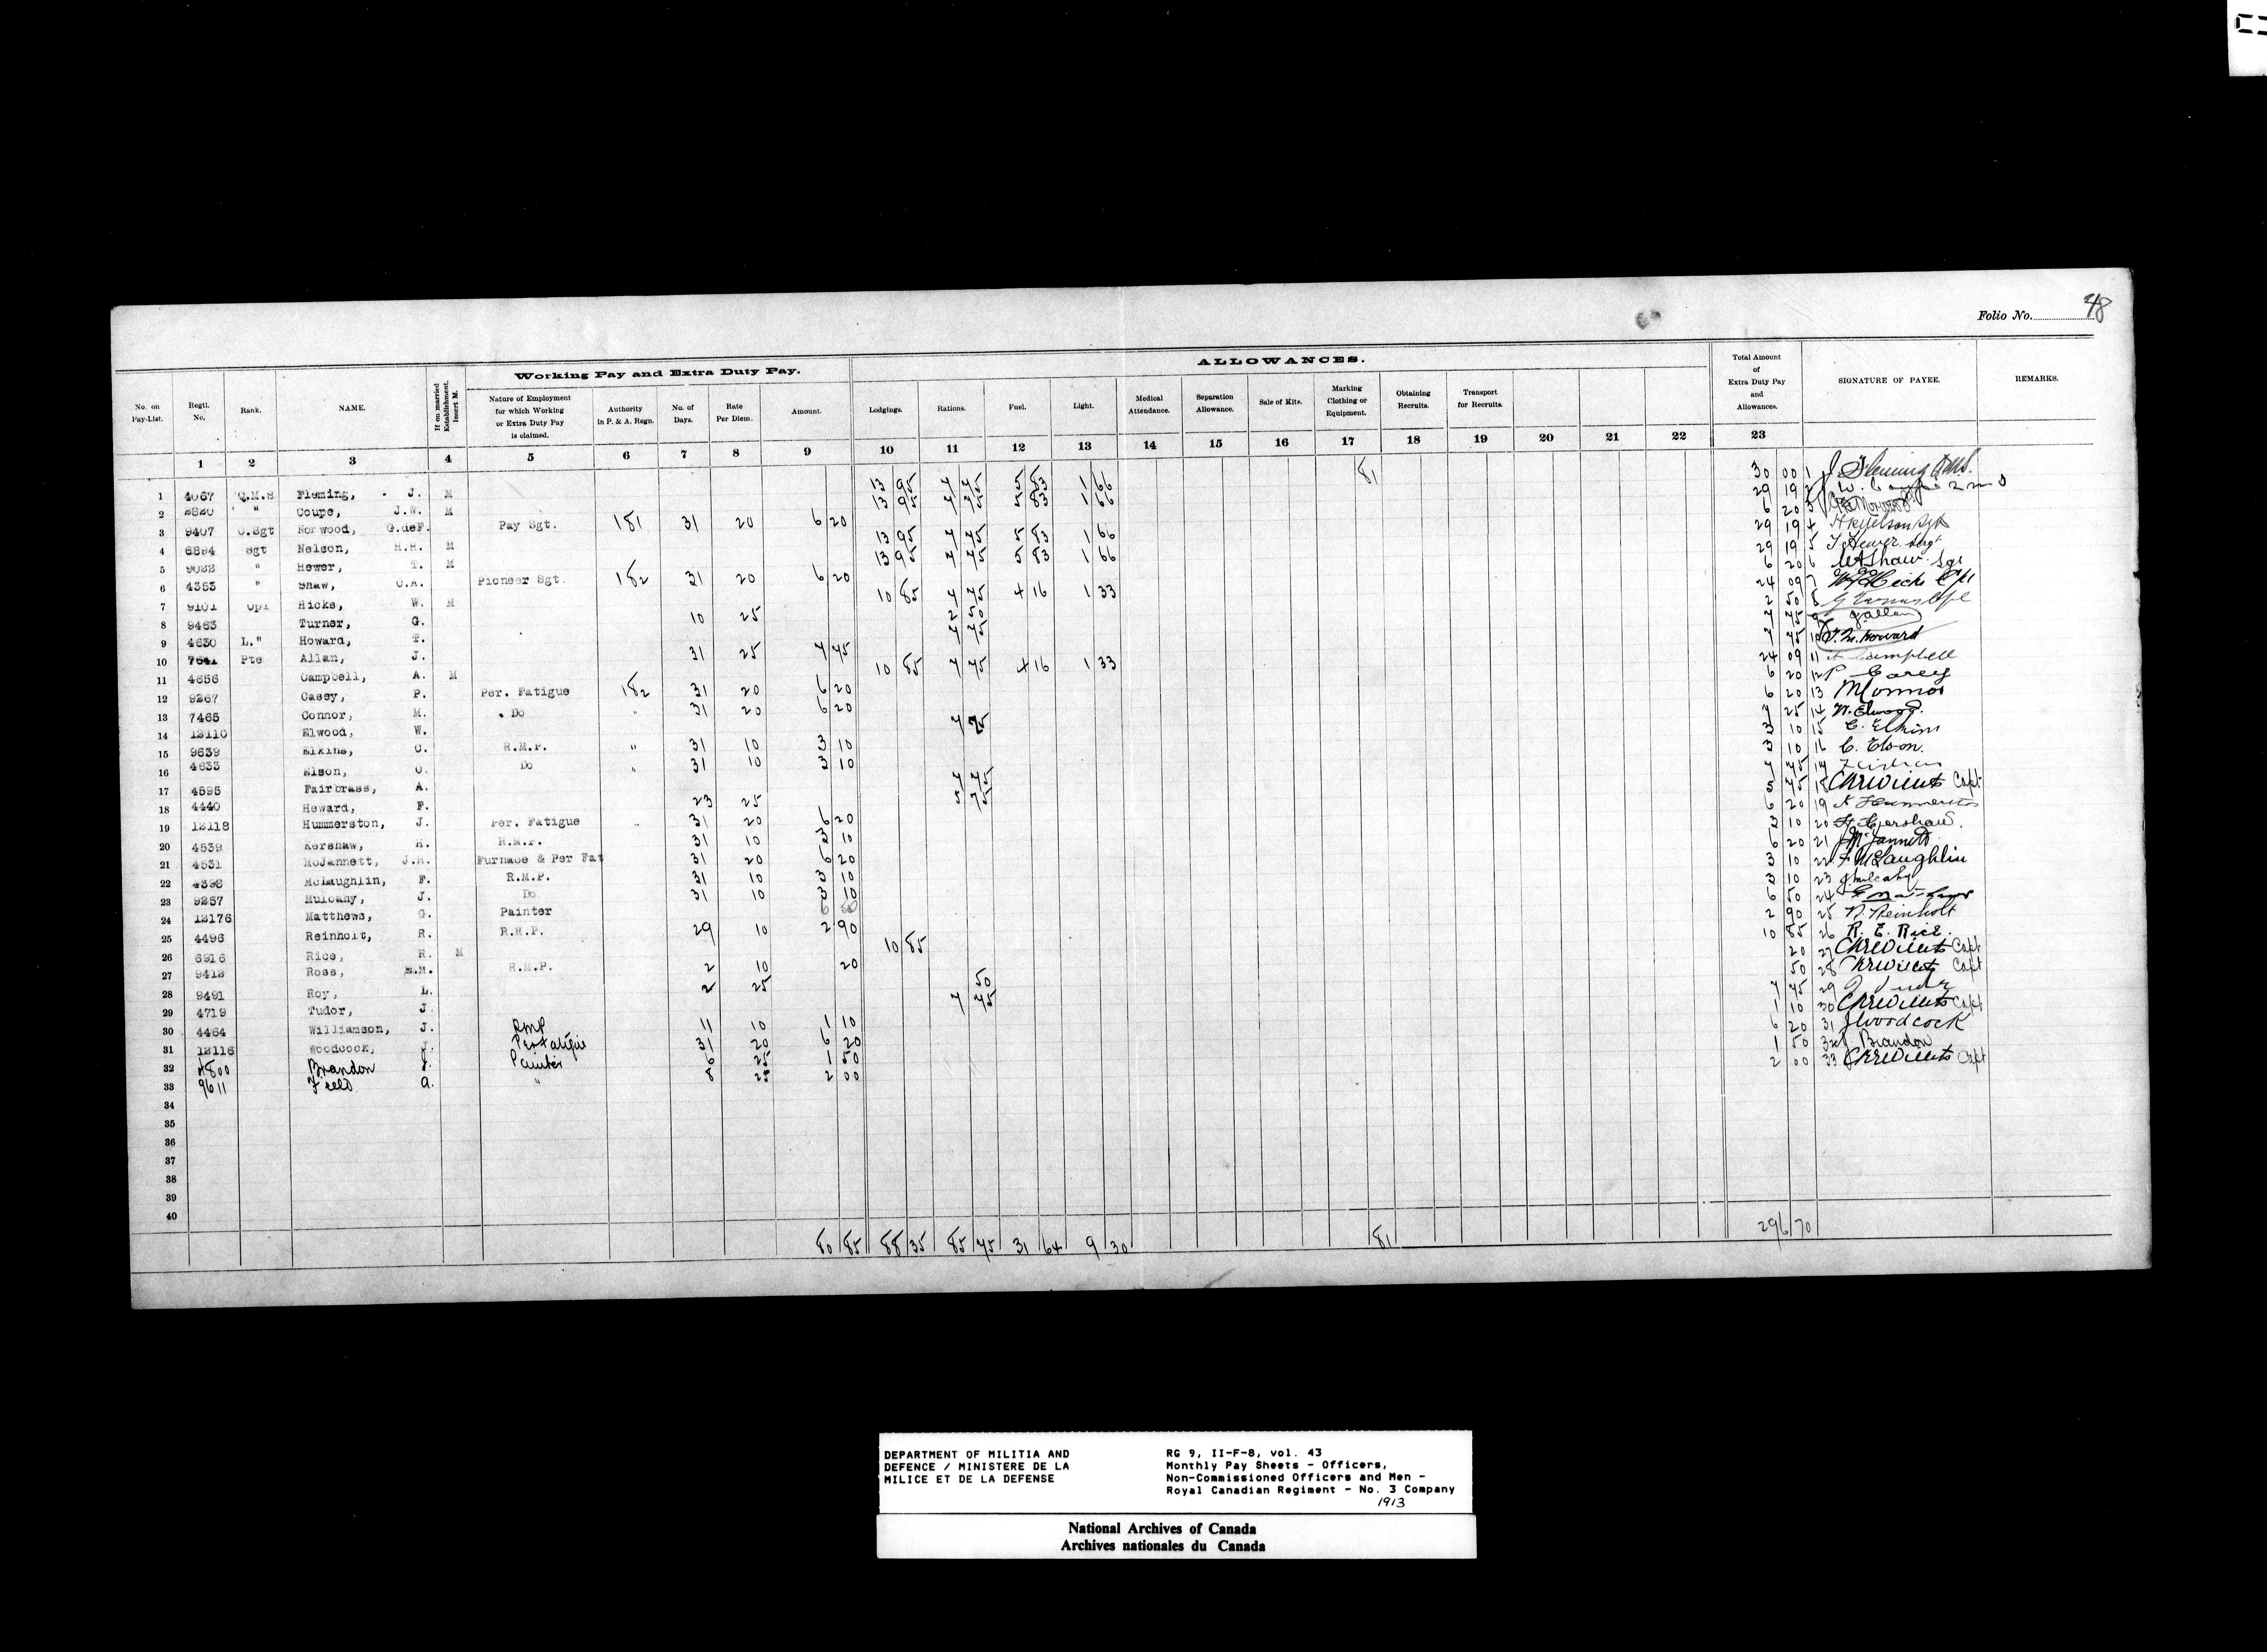 Folio No. 48
Working Pay and Extra Duty Pay. ALLOWANCES.
No. on Pay-List. Regtl. No. Rank. NAME. If on married Establishment, insert M. Nature of Employment for which Working or Extra Duty Pay is claimed. Authority in P. & A. Regn. No. of Days. Rate Per Diem. Amount. Lodgings. Rations. Fuel. Light. Medical Attendance. Separation Allowance. Sale of Kits. Marking Clothing or Equipment. Obtaining Recruits. Transport for Recruits. Total Amount of Extra Duty Pay and Allowances. SIGNATURE OF PAYEE. REMARKS.
1 2 3 4 5 6 7 8 9 10 11 12 13 14 15 16 17 18 19 20 21 22 23
1 4067 Q.M.S Fleming, J. M 13 95 7 75 5 83 1 66 81 30 00 1 J Fleming QMS.
2 " Coupe, J.W. M 13 95 7 75 5 83 1 66 29 19 2
3 9407 C.Sgt Norwood, G.deF. Pay Sgt. 181 31 20 6 20 6 20 3
4 6894 Sgt Nelson, H.R. M 13 95 7 75 5 83 1 66 29 19 4 HRNelson Sgt
5 " Hewer, T. M 13 95 7 75 5 83 1 66 29 19 5 T Hewer. Sergt
6 4353 " Shaw, C.A. Pioneer Sgt. 182 31 20 6 20 6 20 6 CAShaw. Sgt
7 9101 Cpl Hicks, W. M 10 85 7 75 4 16 1 33 24 09 7 Hicks Cpl
8 9463 Turner, G. 10 25 2 50 2 50 8 G Turner Cpl
9 4630 L." Howard, T. 7 75 7 75 9 J allan
10 7641 Pte Allan, J. 31 25 7 75 7 75 10 T. W. Howard
11 4656 Campbell, A. M 10 85 7 75 4 16 1 33 24 09 11 A Campbell
12 9267 Casey, P. Per. Fatigue 182 31 20 6 20 6 20 12 P Casey
13 7465 Connor, M. Do " 31 20 6 20 6 20 13 M Connor
14 12110 Elwood, W. 7 25 7 25 14 W. Elwood.
15 9639 Elkins, C. R.M.P. " 31 10 3 10 3 10 15 C. Elkins
16 4633 Elson, C. Do " 31 10 3 10 3 10 16 C. Elson.
17 4595 Fairbrass, A. 7 75 7 75 17
18 4440 Heward, F. 23 25 5 75 5 75 18 Capt
19 12118 Hummerston, J. Per. Fatigue " 31 20 6 20 6 20 19 Hummerston
20 4539 Kershaw, H. R.M.P. 31 10 3 10 3 10 20 H Kershaw.
21 4531 McJannett, J.H. Furnace & Per Fat 31 20 6 20 6 20 21 McJannett
22 4398 McLaughlin, F. R.M.P. 31 10 3 10 3 10 22 F McLaughlin
23 9257 Mulcahy, J. Do 31 10 3 10 3 10 23 J mulcahy
24 12176 Matthews, G. Painter 6 50 6 50 24 G Matthews
25 4496 Reinholt, R. R.M.P. 29 10 2 90 2 90 25 R. Reinholt
26 6916 Rice, R. M 10 85 10 85 26 R. E. Rice.
27 9413 Ross, R.M.P. 2 10 20 20 27 Capt
28 9491 Roy, L. 2 25 50 50 28 Capt
29 4719 Tudor, J. 7 75 7 75 29 J Tudor
30 4464 Williamson, J. RMP 11 10 1 10 1 10 30 Capt
31 12116 Woodcock, J. Per Fatigue 31 20 6 20 6 20 31 J Woodcock
32 4800 Brandon J. Painter 6 25 1 50 1 50 32 J Brandon
33 9611 Field A. " 8 25 2 00 2 00 33 Capt
34
35
36
37
38
39
40
80 85 88 35 85 75 31 64 9 30 81 296 70
DEPARTMENT OF MILITIA AND
DEFENCE / MINISTERE DE LA
MILICE ET DE LA DEFENSE
RG 9, II-F-8, vol. 43
Monthly Pay Sheets - Officers,
Non-Commissioned Officers and Men -
Royal Canadian Regiment - No. 3 Company
1913
National Archives of Canada
Archives nationales du Canada